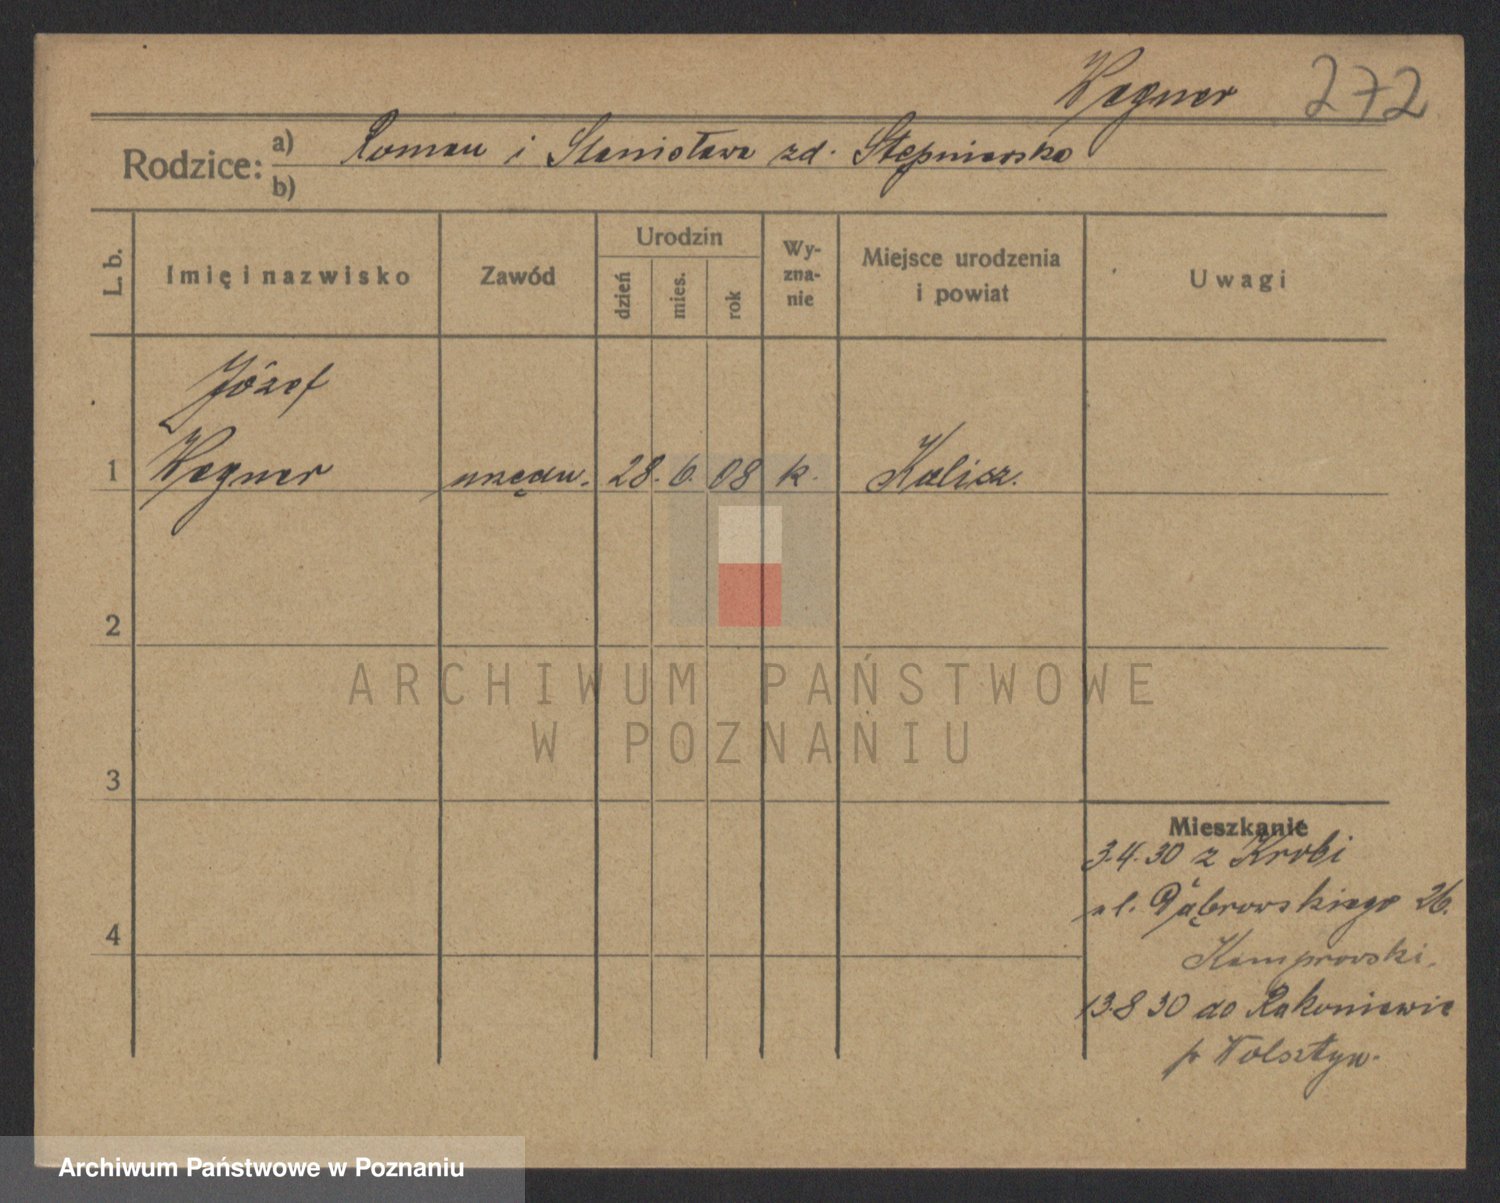 Wegner 272
Rodzice: a) Roman i Stanisława zd. Stępniarska
b)
L. b. Imię i nazwisko Zawód Urodzin dzień mies. rok Wy-zna-nie Miejsce urodzenia i powiat Uwagi
Józef
1 Wegner urzędn. 28. 6. 08 k. Kalisz.
2
3
Mieszkanie
3.4.30 z Krobi
ul. Dąbrowskiego 26.
4
13.8 30 do Rakoniewic
p Wolsztyn.
ARCHIWUM PAŃSTWOWE
W POZNANIU
Archiwum Państwowe w Poznaniu